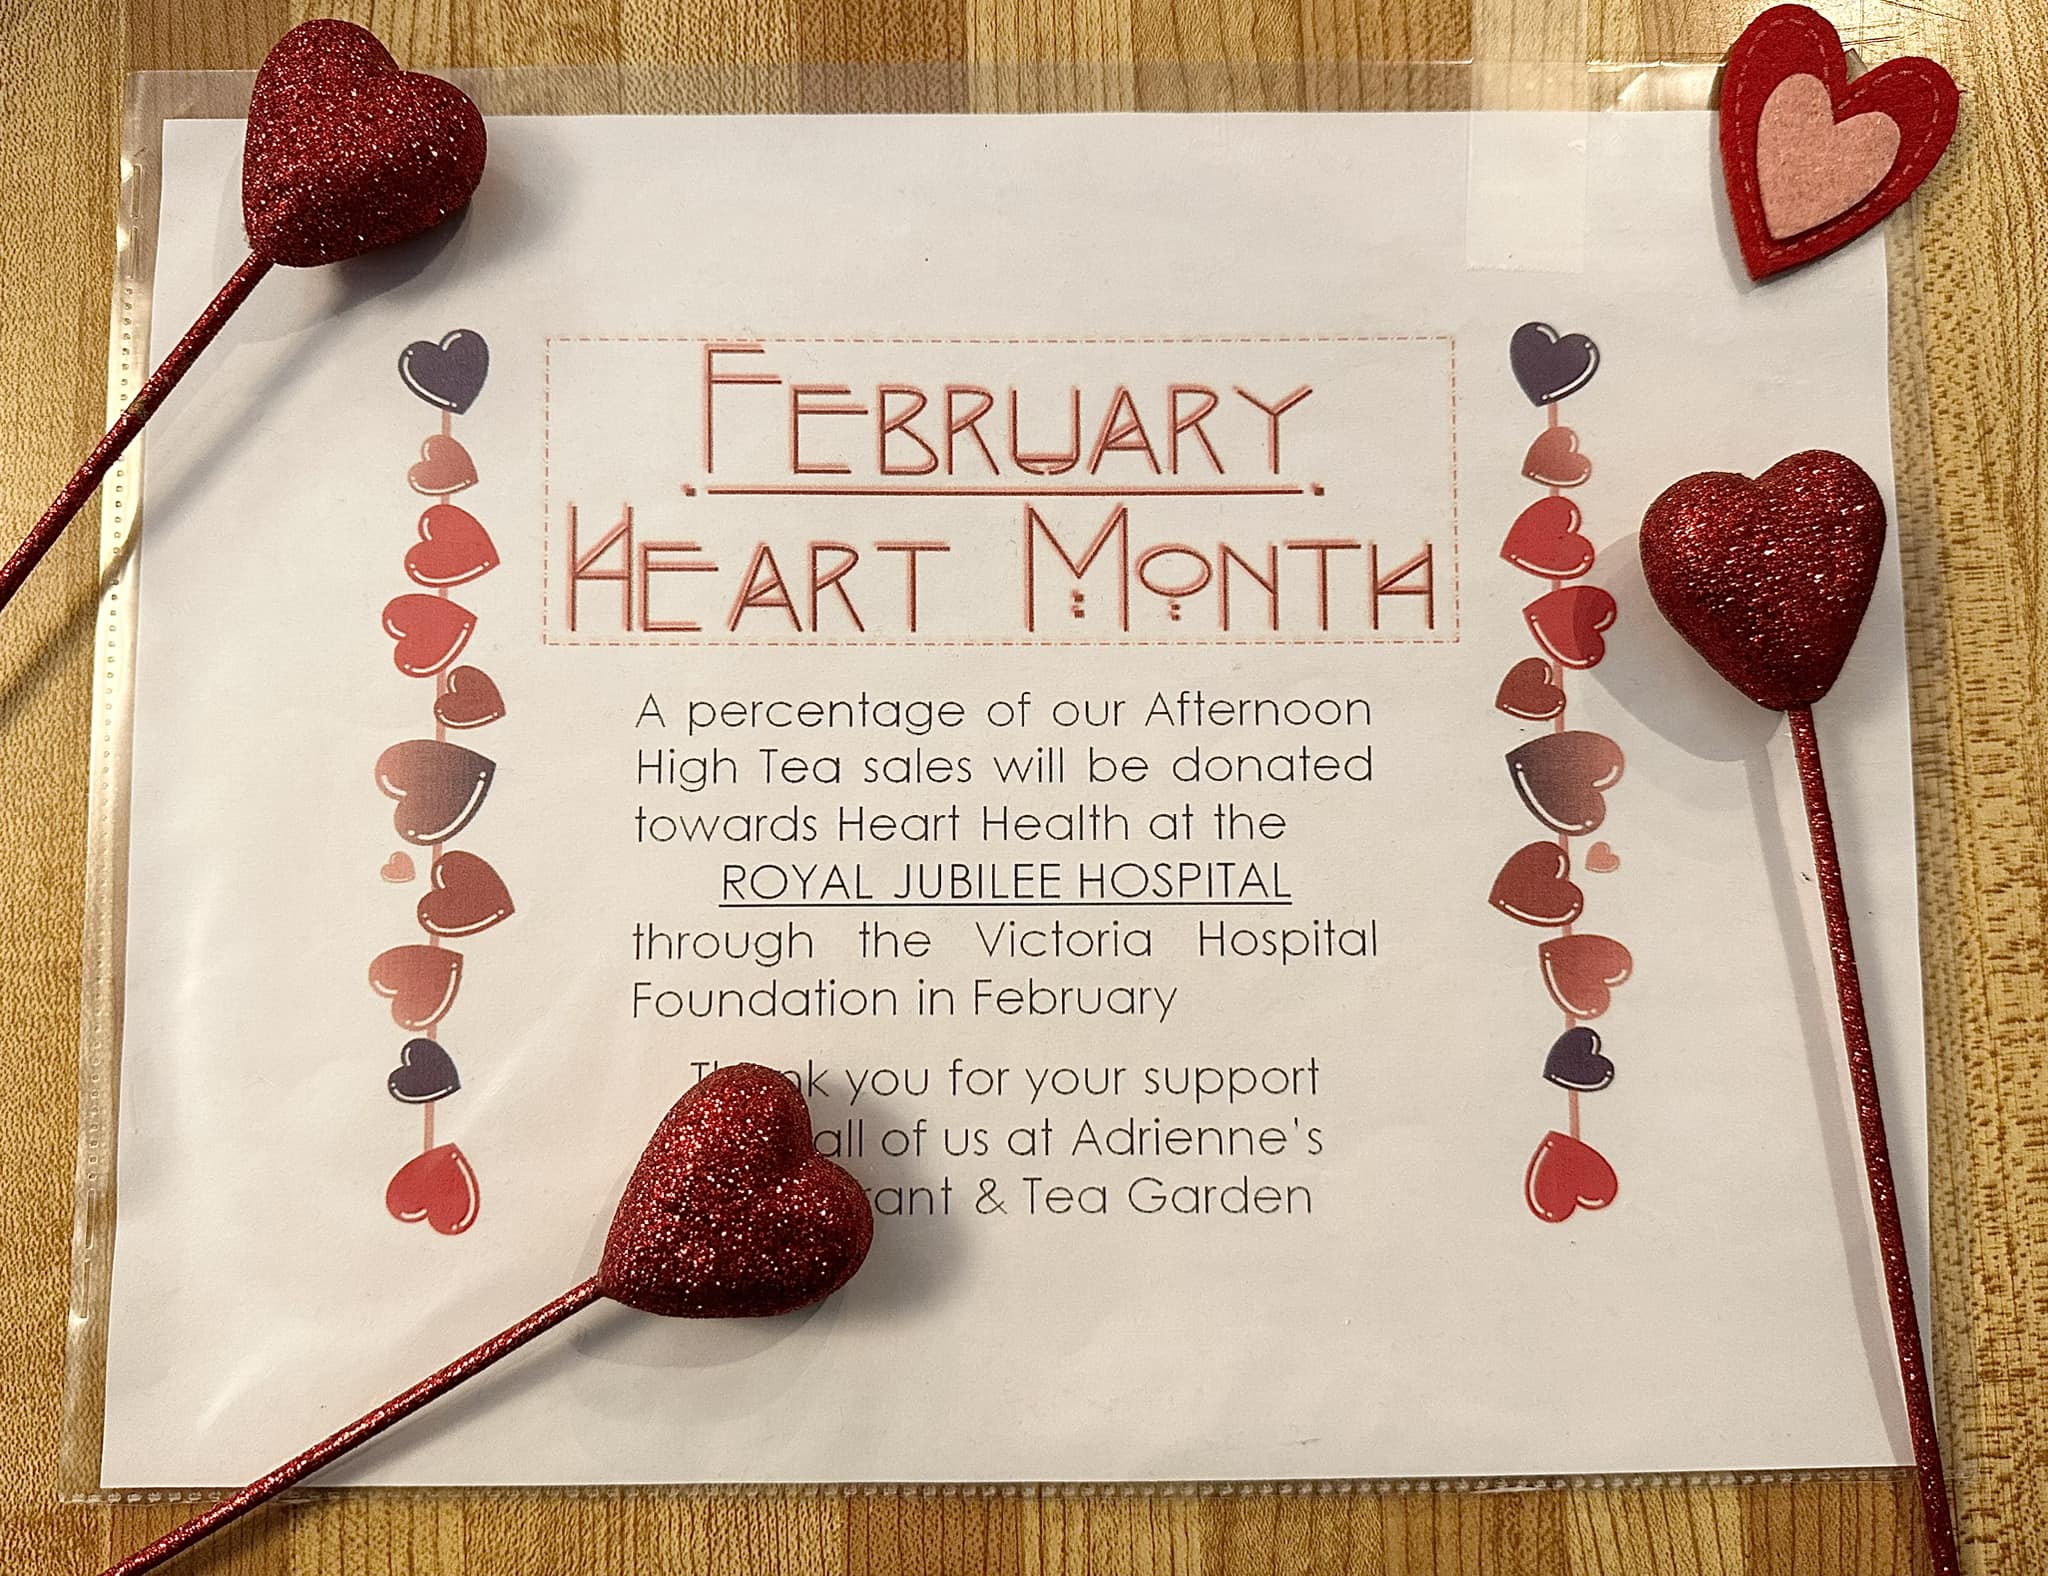 February
Heart Month
A percentage of our Afternoon
High Tea sales will be donated
towards Heart Health at the
ROYAL JUBILEE HOSPITAL
through the Victoria Hospital
Foundation in February
you for your support
all of us at Adrienne's
& Tea Garden